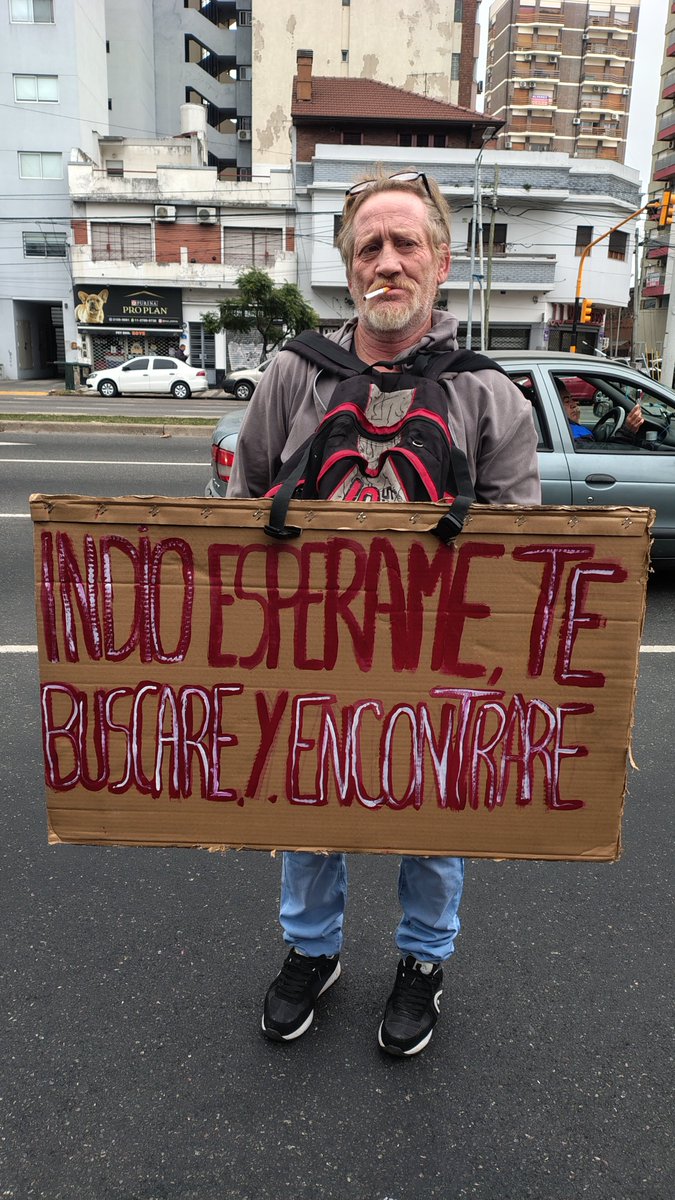 PURINA
PRO PLAN
INDIO ESPERAME, TE
BUSCARE.Y.ENCONTRARE